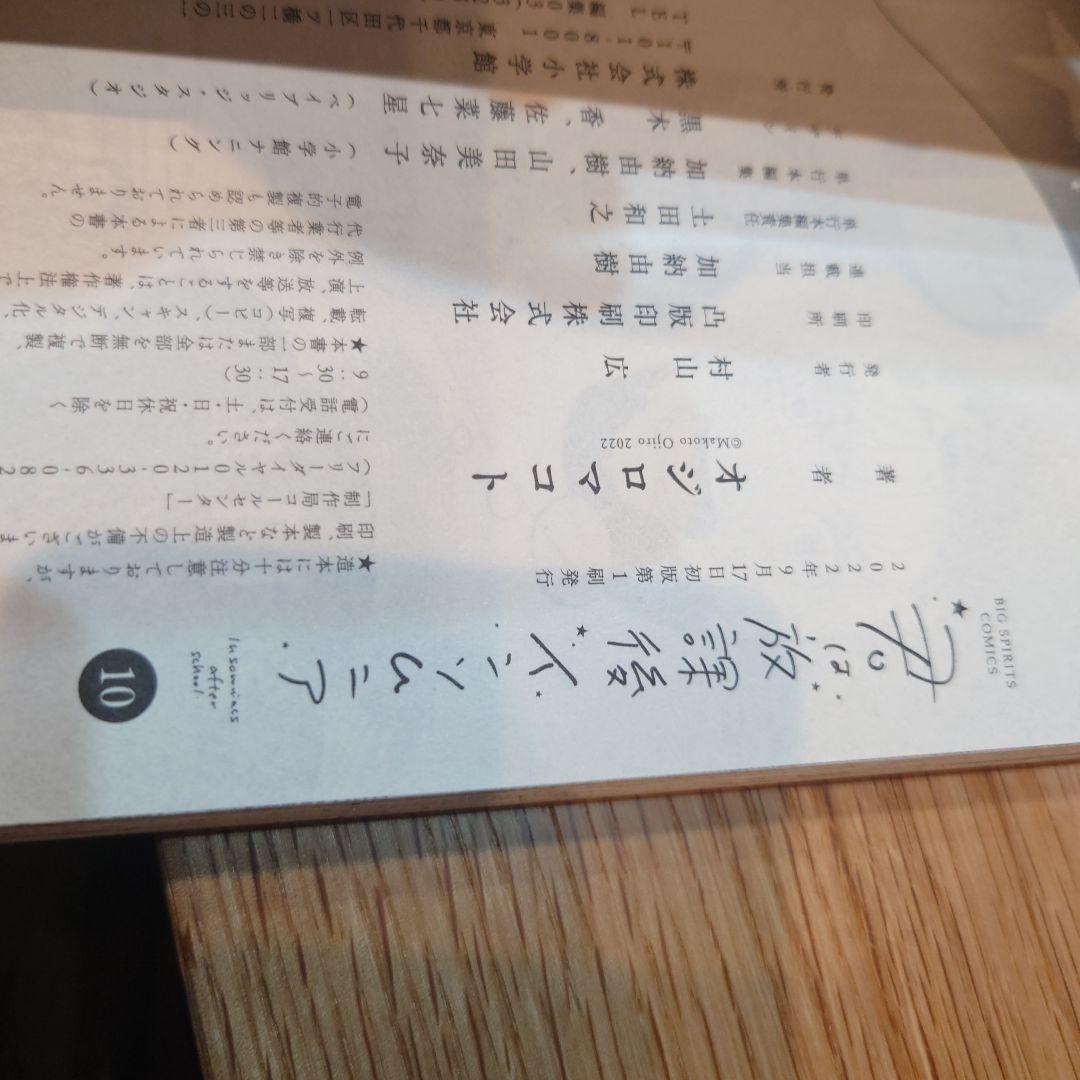 BIG SPIRITS
COMICS
君は放課後インソムニア
Insomniacs
after
school
10
2022年9月17日 初版第1刷発行
著者 オジロマコト
©Makoto Ojiro 2022
発行者 村山 広
印刷所 凸版印刷株式会社
連載担当 加納由樹
単行本編集責任 土田和之
単行本編集 加納由樹、山田美奈子
(小学館ナニング)
黒木 香、佐藤菜七星
(ベイブリッジ・スタジオ)
発行所 株式会社 小学館
〒101-8001
東京都千代田区一ツ橋二の三の一
TEL
編集03(
★造本には十分注意しておりますが、
印刷、製本など製造上の不備がございま
「制作局コールセンター」
(フリーダイヤル0120・336・082
にご連絡ください。
(電話受付は、土・日・祝休日を除く
9:30〜17:30)
★本書の一部または全部を無断で複製、
転載、複写(コピー)、スキャン、デジタル化、
上演、放送等をすることは、著作権法上で
例外を除き禁じられています。
代行業者等の第三者による本書の
電子的複製も認められておりません。